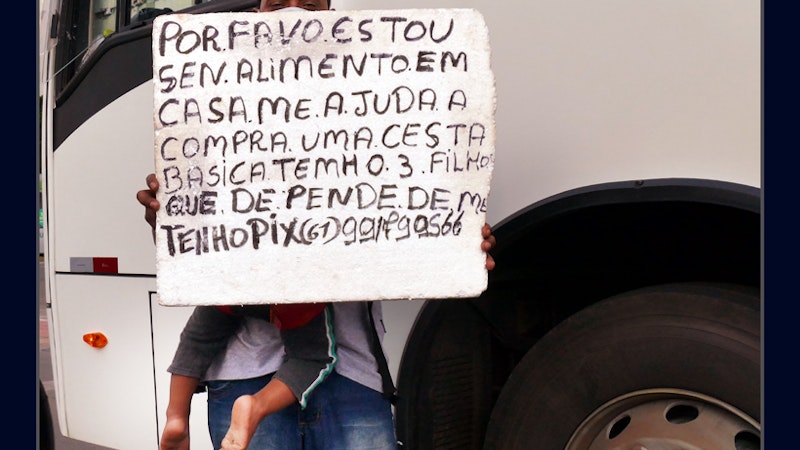 POR.FAVO.ESTOU
SEN.ALIMENTO.EM
CASA.ME.AJUDA A
COMPRA.UMA.CESTA
BASICA.TEMHO.3.FILHO
QUE.DE.PENDE.DE.ME
TENHOPIX(61)